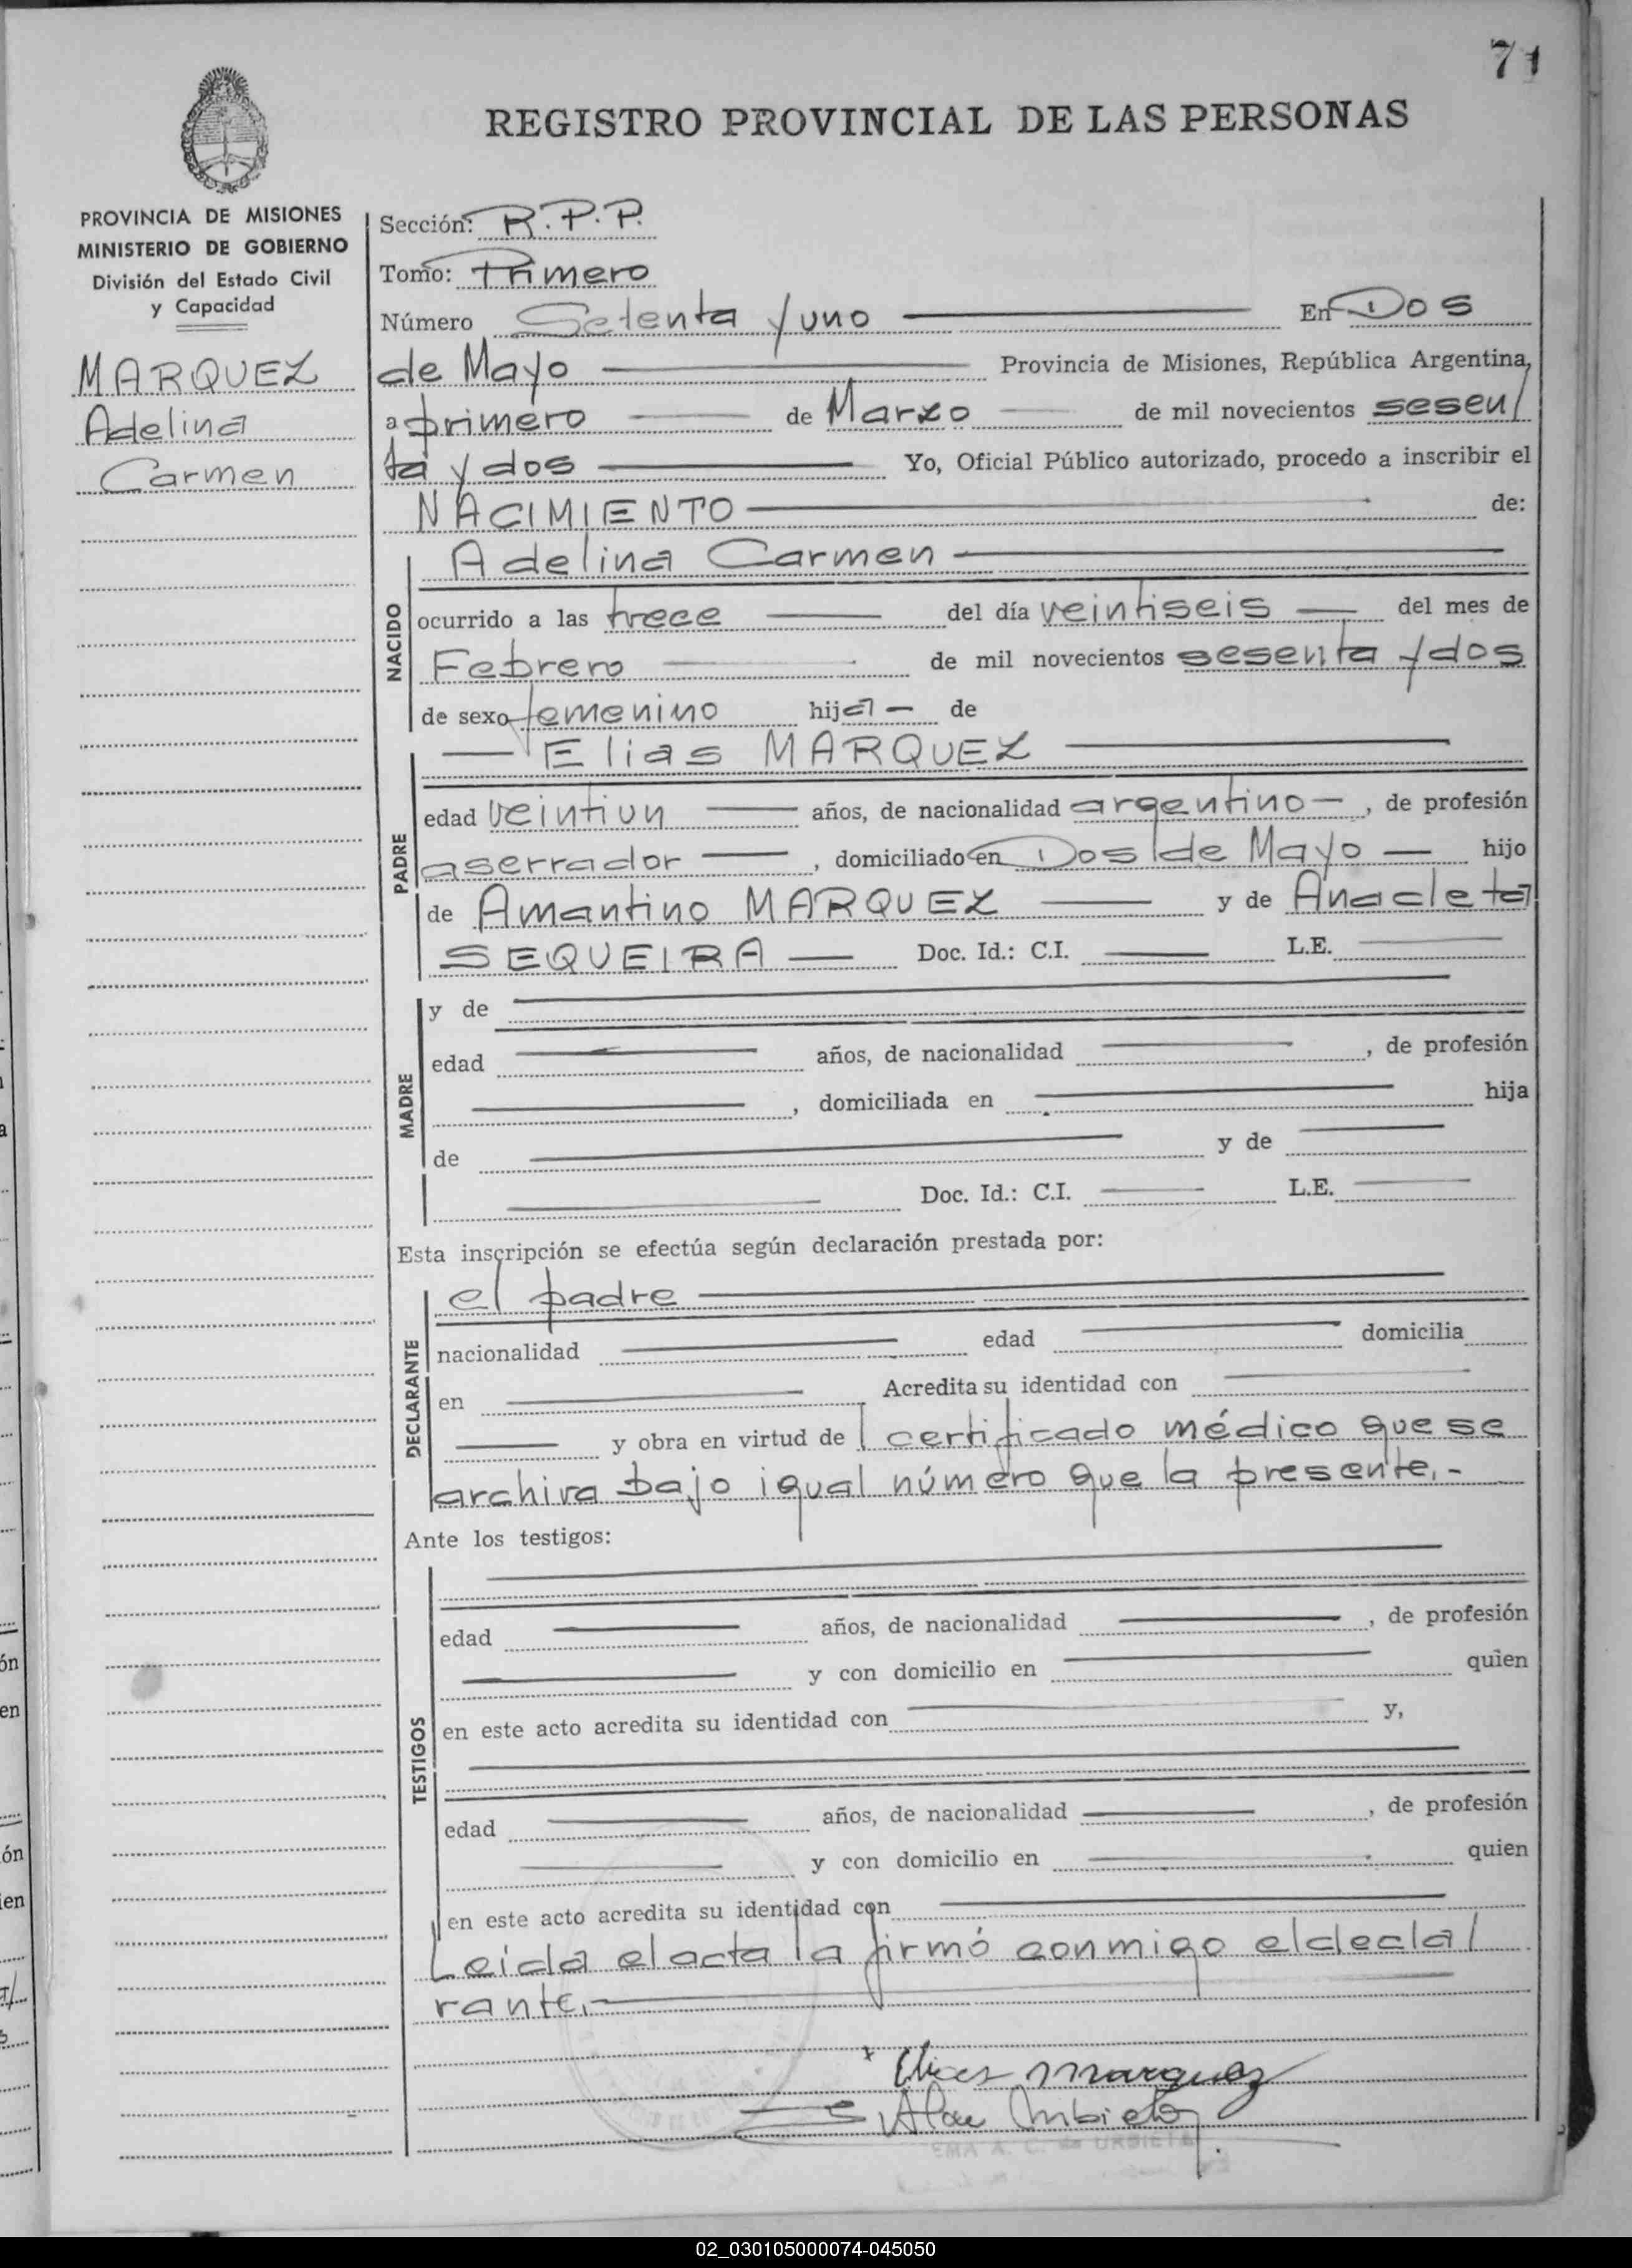 71
REGISTRO PROVINCIAL DE LAS PERSONAS
PROVINCIA DE MISIONES
MINISTERIO DE GOBIERNO
División del Estado Civil
y Capacidad
MARQUEZ
Adelina
Carmen
Sección: R.P.P.
Tomo: Primero
Número Setenta y uno En Dos
de Mayo Provincia de Misiones, República Argentina,
a primero de Marzo de mil novecientos sesen/
ta y dos Yo, Oficial Público autorizado, procedo a inscribir el
NACIMIENTO de:
NACIDO
Adelina Carmen
ocurrido a las trece del día veintiseis del mes de
Febrero de mil novecientos sesenta y dos
de sexo femenino hija de
PADRE
Elias MARQUEZ
edad veintiun años, de nacionalidad argentino, de profesión
aserrador, domiciliado en Dos de Mayo hijo
de Amantino MARQUEZ y de Anacleta
SEQUEIRA Doc. Id.: C.I. L.E.
MADRE
y de
edad años, de nacionalidad , de profesión
, domiciliada en hija
de y de
Doc. Id.: C.I. L.E.
Esta inscripción se efectúa según declaración prestada por:
DECLARANTE
el padre
nacionalidad edad domicilia
en Acredita su identidad con
y obra en virtud del certificado médico que se
archiva bajo igual número que la presente.-
Ante los testigos:
TESTIGOS
edad años, de nacionalidad , de profesión
y con domicilio en quien
en este acto acredita su identidad con y,
edad años, de nacionalidad , de profesión
y con domicilio en quien
en este acto acredita su identidad con
Leida el acta la firmó conmigo el decla/
rante.-
Elias Marquez
EMA A. C. de URBIETA
02_030105000074-045050